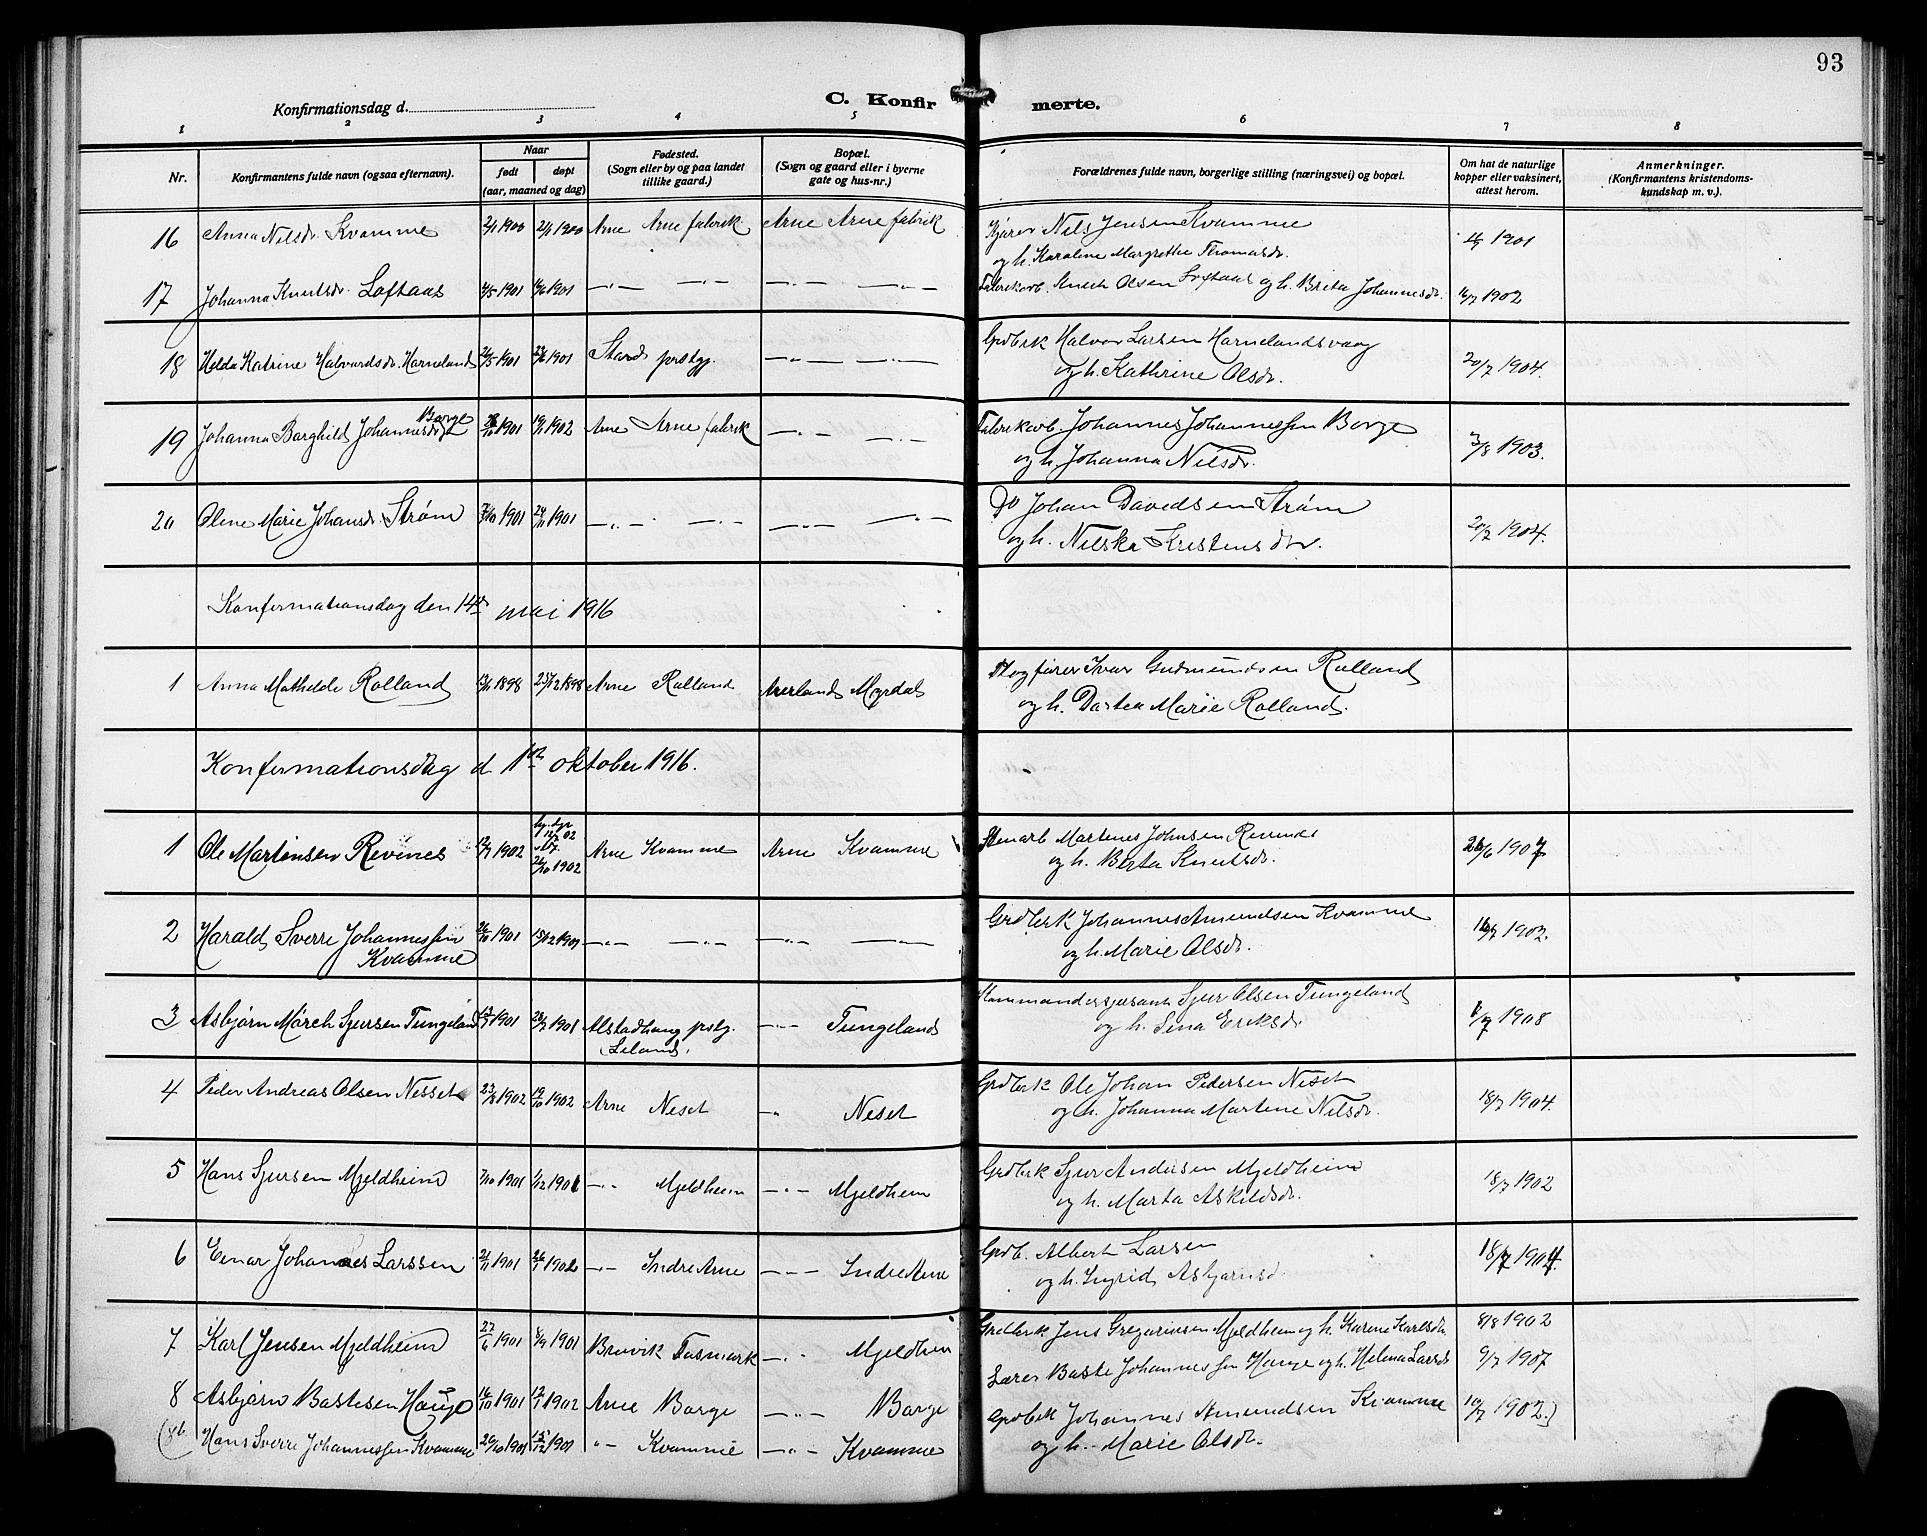 93
Konfirmationsdag d.
C. Konfirmerte.
1 2 3 4 5 6 7 8
Nr.
Konfirmantens fulde navn (ogsaa efternavn).
Naar
født døpt
(aar, maaned og dag)
Fødested.
(Sogn eller by og paa landet
tillike gaard.)
Bopæl.
(Sogn og gaard eller i byerne
gate og hus-nr.)
Forældrenes fulde navn, borgerlige stilling (næringsvei) og bopæl.
Om hat de naturlige
kopper eller vaksinert,
attest herom.
Anmerkninger.
(Konfirmantens kristendoms-
kundskap m. v.).
16 Anna Nilsdr. Kvamme 2/1 1900 2/1 1900 Arne Arne fabrik Arne Arne fabrik Kjører Nils Jensen Kvamme 1901
og h. Karoline Margrethe Thomasdr.
17 Johanna Knutsdr. Loftaas 4/5 1901 1901 —"— —"— —"— —"— Fabrikarb. Knut Olsen Loftaas og h. Brita Johannesdr. 16/7 1902
18 Helda Katrine Halvardsdr. Harneland 26/5 1901 23/6 1901 Stords prstgj. —"— —"— Grdbrk Halvor Larsen Harnelandsvaag 20/7 1904.
og h. Kathrine Olsdr.
19 Johanna Borghild Johannesdr. Borge 1901 19/1 1902 Arne Arne fabrik —"— —"— Fabrikarb. Johannes Johannessen Borge 3/8 1903.
og h. Johanna Nilsdr.
20 Oline Marie Johansdr. Strøm 7/10 1901 24/11 1901 —"— —"— —"— —"— Do Johan Davidsen Strøm 20/7 1904.
og h. Nilska Kristensdtr.
Konfirmationsdag den 14de mai 1916
1 Anna Mathilde Rolland 13/11 1898 25/12 1898 Arne Rolland Aurland Myrdal Togfører Ivar Gudmundsen Rolland
og h. Dortea Marie Rolland.
Konfirmationsdag d 1ste oktober 1916.
1 Ole Martinsen Revenes 12/7 1902 26/10 1902 Arne Kvamme Arne Kvamme Stenarb Martines Johnsen Revenes 26/6 1907
og h. Berta Knutsdr.
2 Harald Sverre Johannessen 26/10 1901 15/12 1901 —"— —"— —"— —"— Grdbrk Johannes Amundsen Kvamme 16/7 1902.
Kvamme og h. Marie Olsdr.
3 Asbjørn Mørch Sjursen Tungeland 1901 28/7 1901 Alstadhaug prstg. —"— Tungeland Kommandersersjant Sjur Olsen Tungeland 1908
og h. Sina Eriksdr.
4 Peder Andreas Olsen Nesset 23/8 1902 19/10 1902 Arne Neset —"— Neset Grdbrk Ole Johan Pedersen Neset 18/7 1904.
og h. Johanna Martine Nilsdr.
5 Hans Sjursen Mjeldheim 7/10 1901 1/12 1901 —"— Mjeldheim —"— Mjeldheim Grdbrk Sjur Andersen Mjeldheim 18/7 1902
og h. Marta Askildsdr.
6 Einar Johannes Larssen 21/11 1901 26/1 1902 —"— Indre Arne —"— Indre Arne Grdb. Albert Larsen 18/7 1904.
og h. Ingrid Asbjørnsd.
7 Karl Jensen Mjeldheim 27/6 1901 8/9 1901 Bruvik Tosmark —"— Mjeldheim Grdbrk Jens Gregoriusen Mjeldheim og h. Karene Karlsdr. 8/8 1902
8 Asbjørn Bastesen Hauge 16/10 1901 12/1 1902 Arne Borge —"— Borge Lærer Baste Johannessen Hauge og h. Helena Larsdr. 9/7 1907
(8b. Hans Sverre Johannessen Kvamme 26/10 1901 15/12 1901 "— Kvamme —"— Kvamme Grdbrk Johannes Amundsen Kvamme 10/7 1902.)
og h. Marie Olsdr.